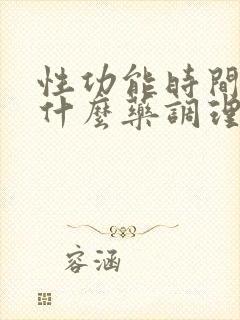 性功能時間
什麼藥調理
容涵